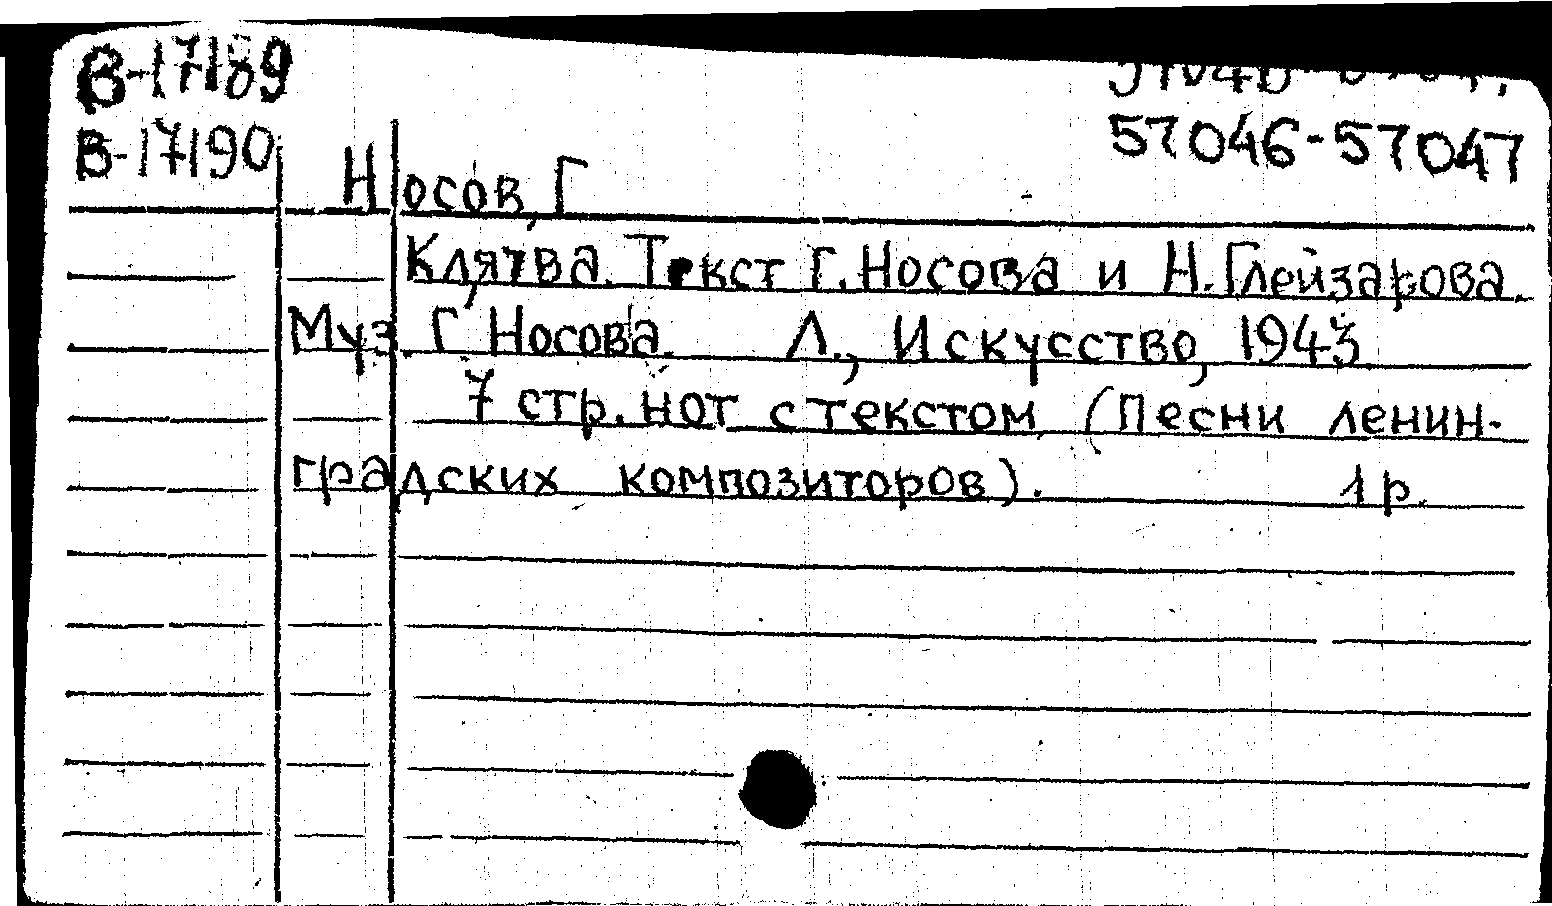 В-17189
В-17190
57046-57047
Носов, Г
Клятва. Текст Г. Носова и Н. Глейзарова.
Муз. Г Носова. Л., Искусство, 1943
7 стр. нот с текстом (Песни ленин-
градских композиторов). 1 р.